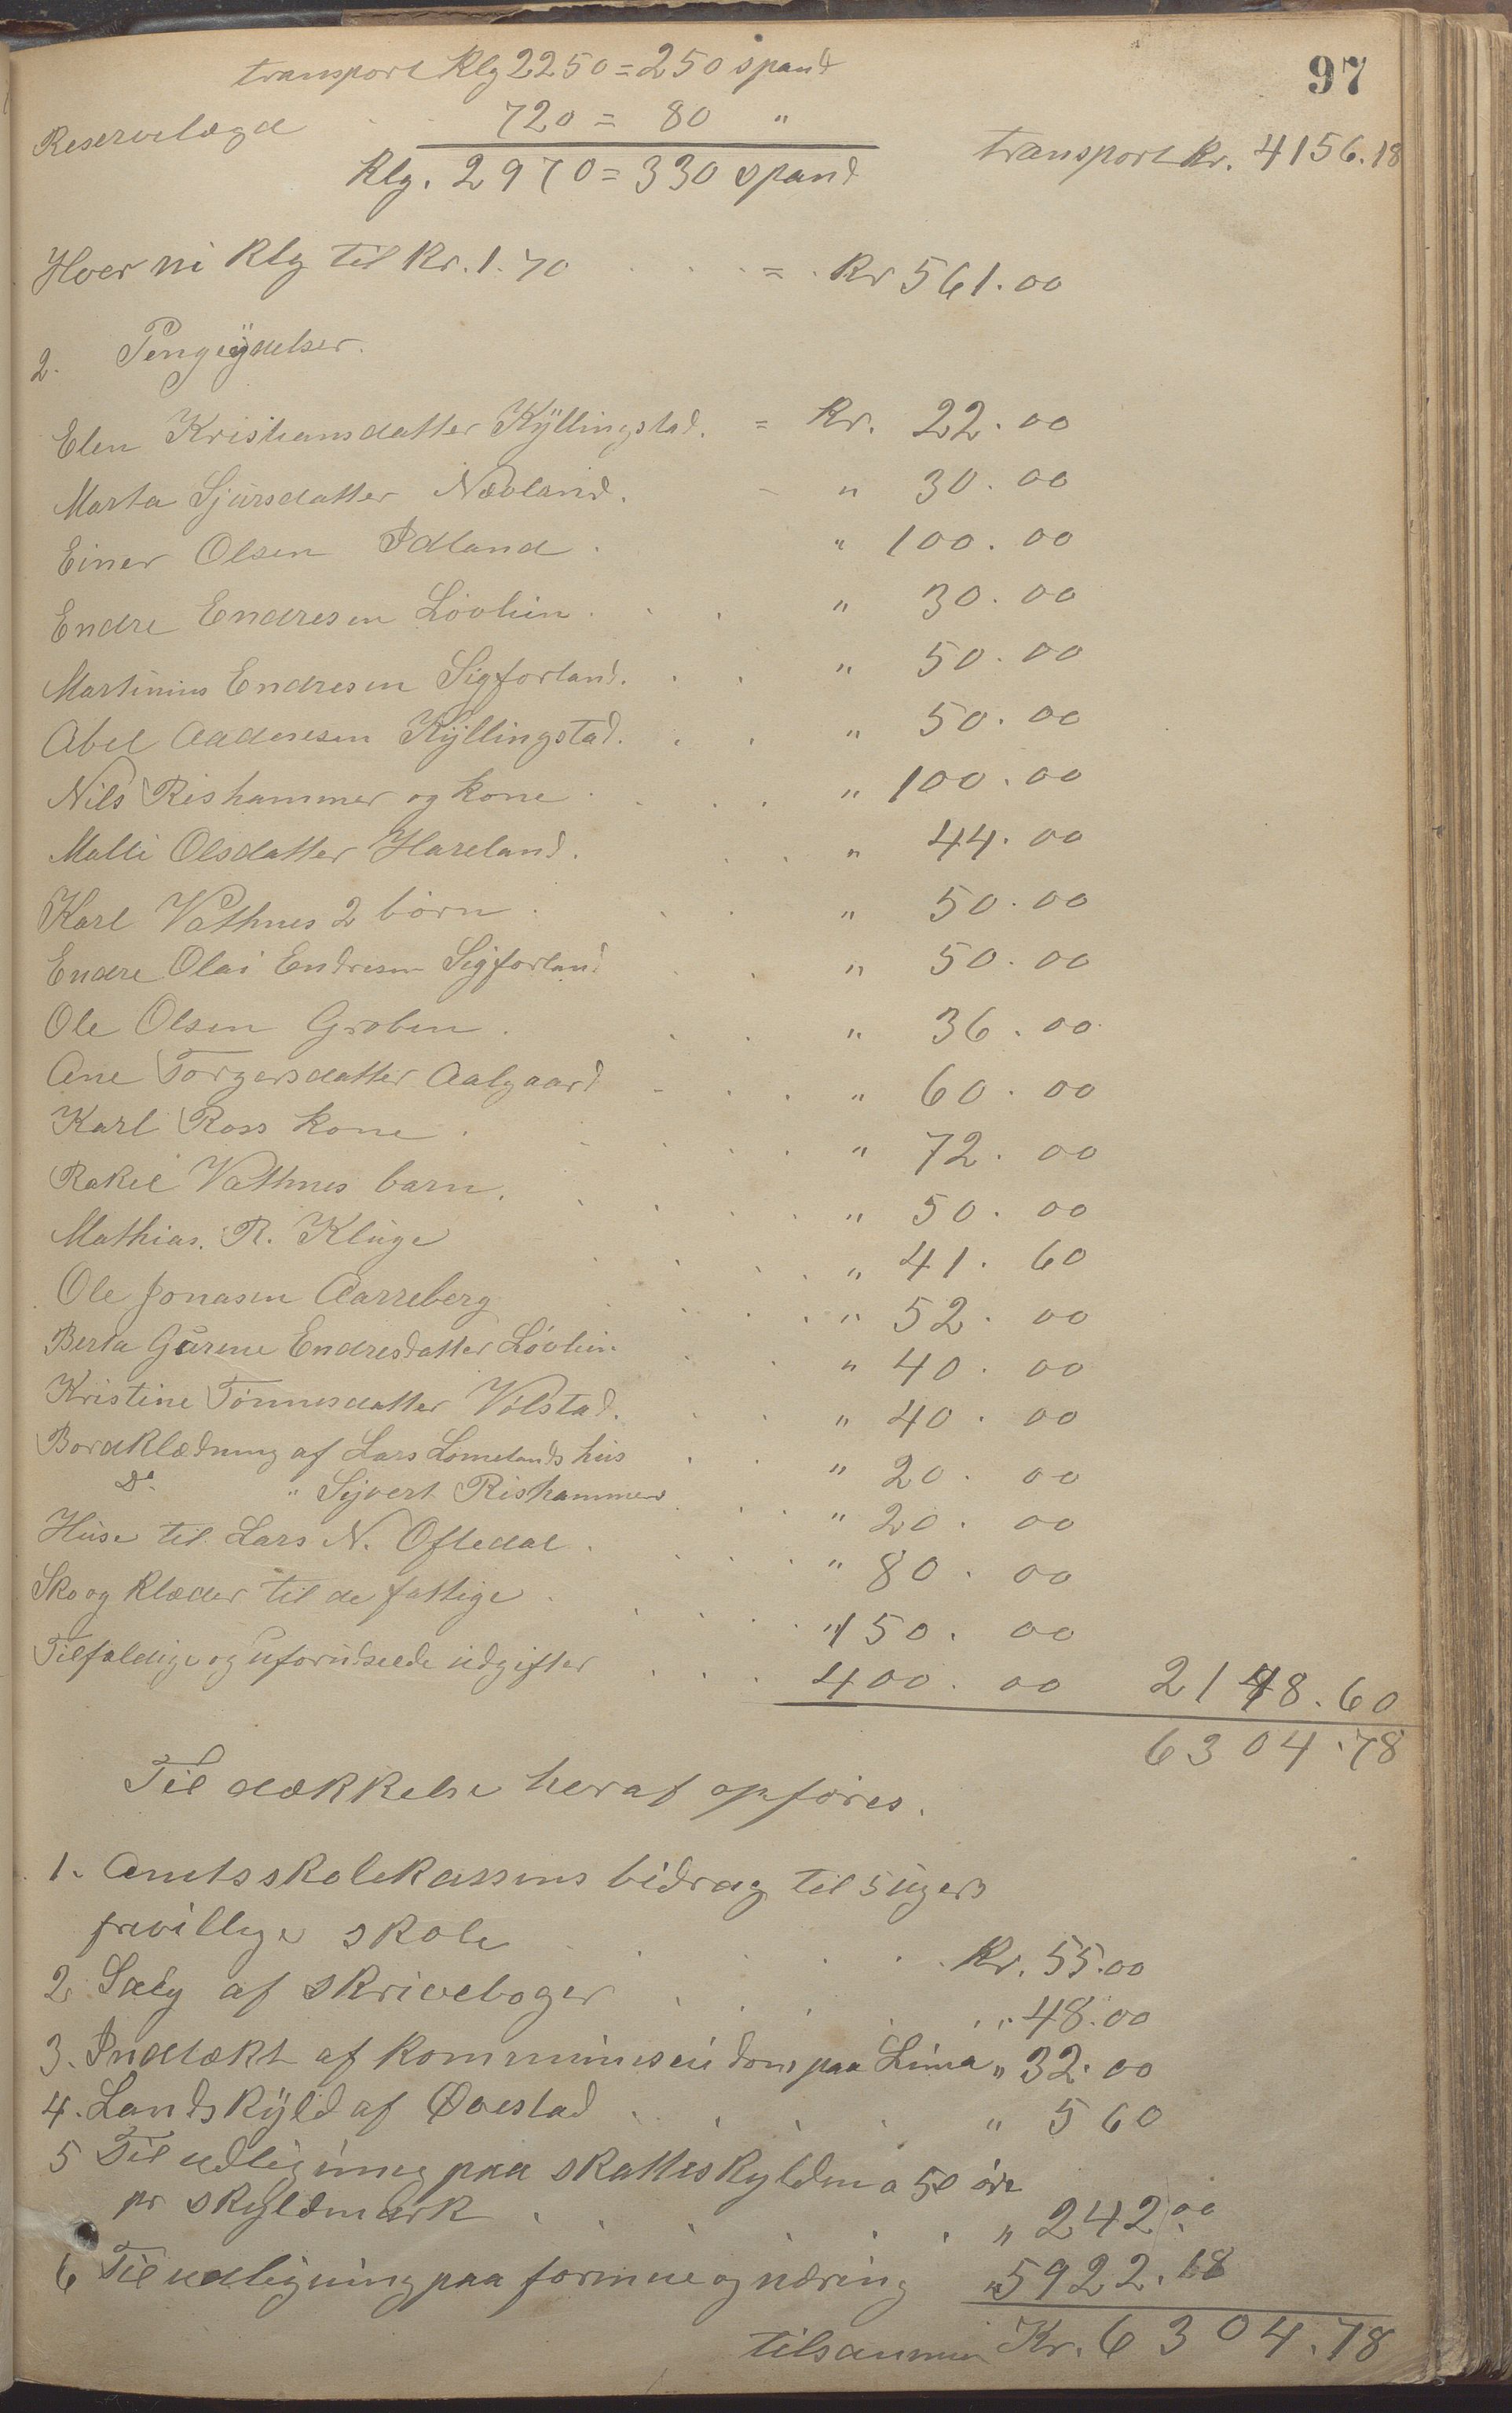 97
transport Klg 2250 = 250 spand
Reservelægd . . 720 = 80 "
transport Kr. 4156.18
Klg. 2970 = 330 spand
Hver ni Klg til Kr. 1.70 . . . = . Kr 561.00
2. Pengeÿdelser.
Elen Kristiansdatter Kÿllingstad. = Kr. 22.00
Marta Sjursdatter Nævland. - " 30.00
Einer Olsen Idland . " 100.00
Endre Endresen Lövlien . . . " 30.00
Martinius Endresen Sigforland. . . " 50.00
Abel Aadnesen Kÿllingstad. . . " 50.00
Nils Rishammer og kone . . . . " 100.00
Malli Olsdatter Hareland. . . " 44.00
Karl Vathnes 2 börn . . . " 50.00
Endre Olai Endresen Sigforland . . " 50.00
Ole Olsen Groben . . . " 36.00
Ane Torgersdatter Aalgaard - . . " 60.00
Karl Ross kone . . . . . " 72.00
Rakel Vathnes barn. . . . . " 50.00
Mathias. R. Kluge . . . . " 41.60
Ole Jonasen Aarreberg . . . . " 52.00
Berta Gurine Endresdatter Lövlien . . " 40.00
Kristine Tönnesdatter Völstad. . . " 40.00
Bordklædning af Lars Lomelands hus . . " 20.00
Do " Sijvert Rishammers . . . " 20.00
Huse til Lars N. Oftedal . . . . " 80.00
Sko og Klæder til de fattige . . . . " 150.00
Tilfældige og uforudseede udgifter . . . 400.00 2148.60
6304.78
Til dækkelse heraf opföres.
1. Amtsskolekassens bidrag til 5 ugers
frivillige skole . . . . . Kr. 55.00
2. Salg af skriveboger . . . . . " 48.00
3. Indtækt af kommunens eiendom paa Lima " 32.00
4. Landskÿld af Øvestad . . . . " 5 60
5 Til udligning paa skatteskylden a 50 öre
pr skyldmark . . . . . . " 242.00
6 Til udligning paa formue og næring " 5922.18
tilsammen Kr. 6304.78